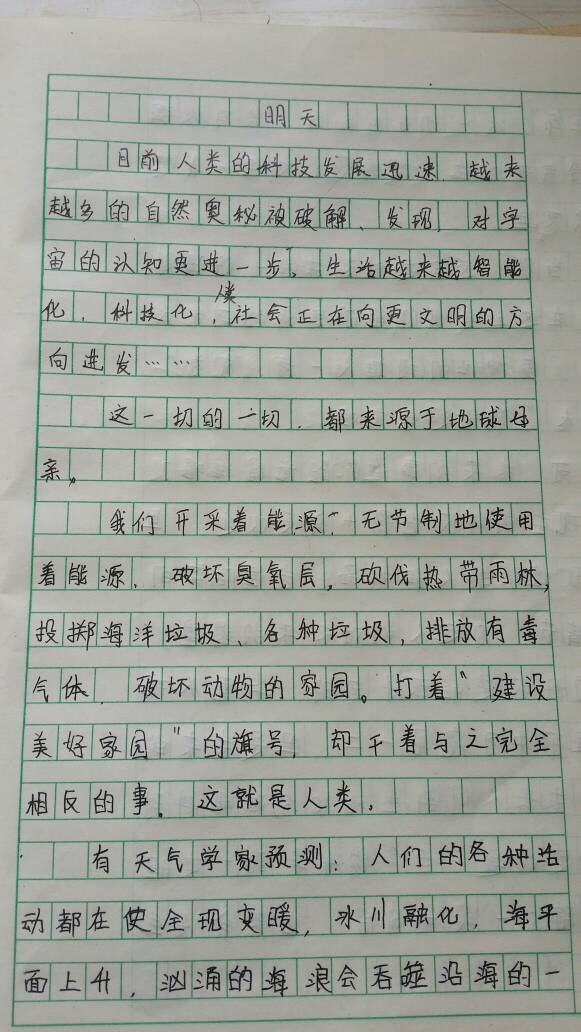 明天
目前人类的科技发展迅速,越来
越多的自然奥秘被破解、发现,对宇
宙的认知更进一步,生活越来越智能
化,科技化,人类社会正在向更文明的方
向进发……
这一切的一切,都来源于地球母
亲。
我们开采着能源,无节制地使用
着能源,破坏臭氧层,砍伐热带雨林,
投掷海洋垃圾、各种垃圾,排放有毒
气体,破坏动物的家园。打着“建设
美好家园”的旗号,却干着与之完全
相反的事。这就是人类,
有天气学家预测:人们的各种活
动都在使全现变暖,冰川融化,海平
面上升,汹涌的海浪会吞噬沿海的一